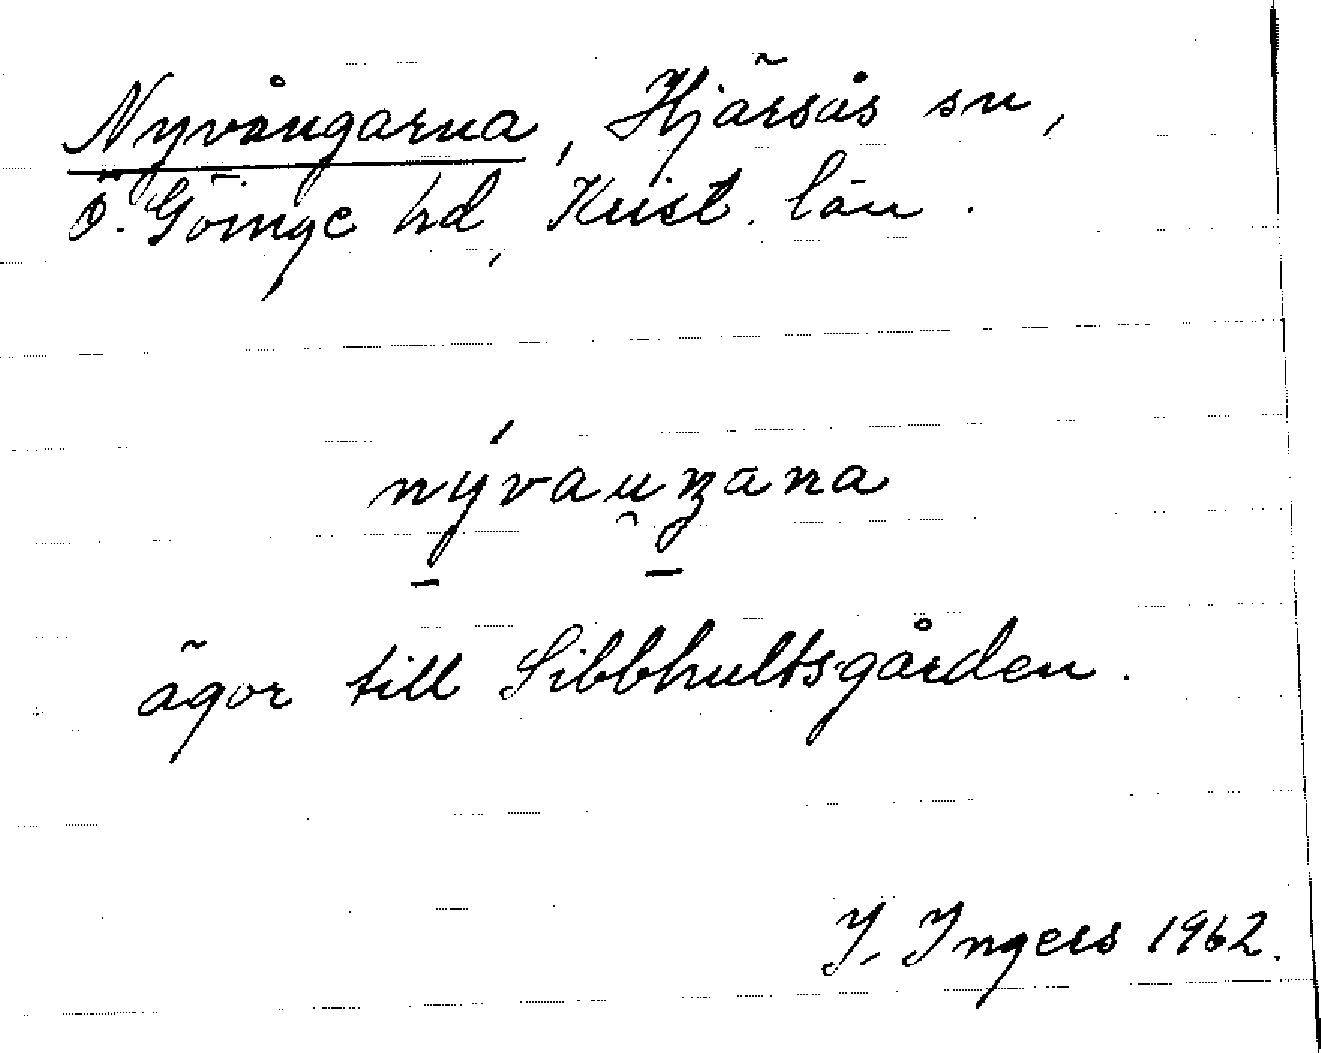 Nyvångarna, Hjärsås sn,
Ö. Göinge hd, Krist. län.
nývau̯ŋana
ägor till Sibbhultsgården.
I. Ingers 1962.